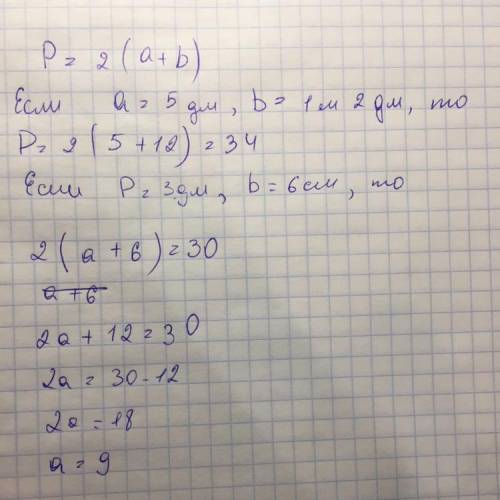 P = 2 (a + b)
Если a = 5 дм, b = 1м 2 дм, то
P = 2 (5 + 12) = 34
Если P = 3дм, b = 6см, то
2 (a + 6) = 30
a + 6
2a + 12 = 30
2a = 30 - 12
2a = 18
a = 9